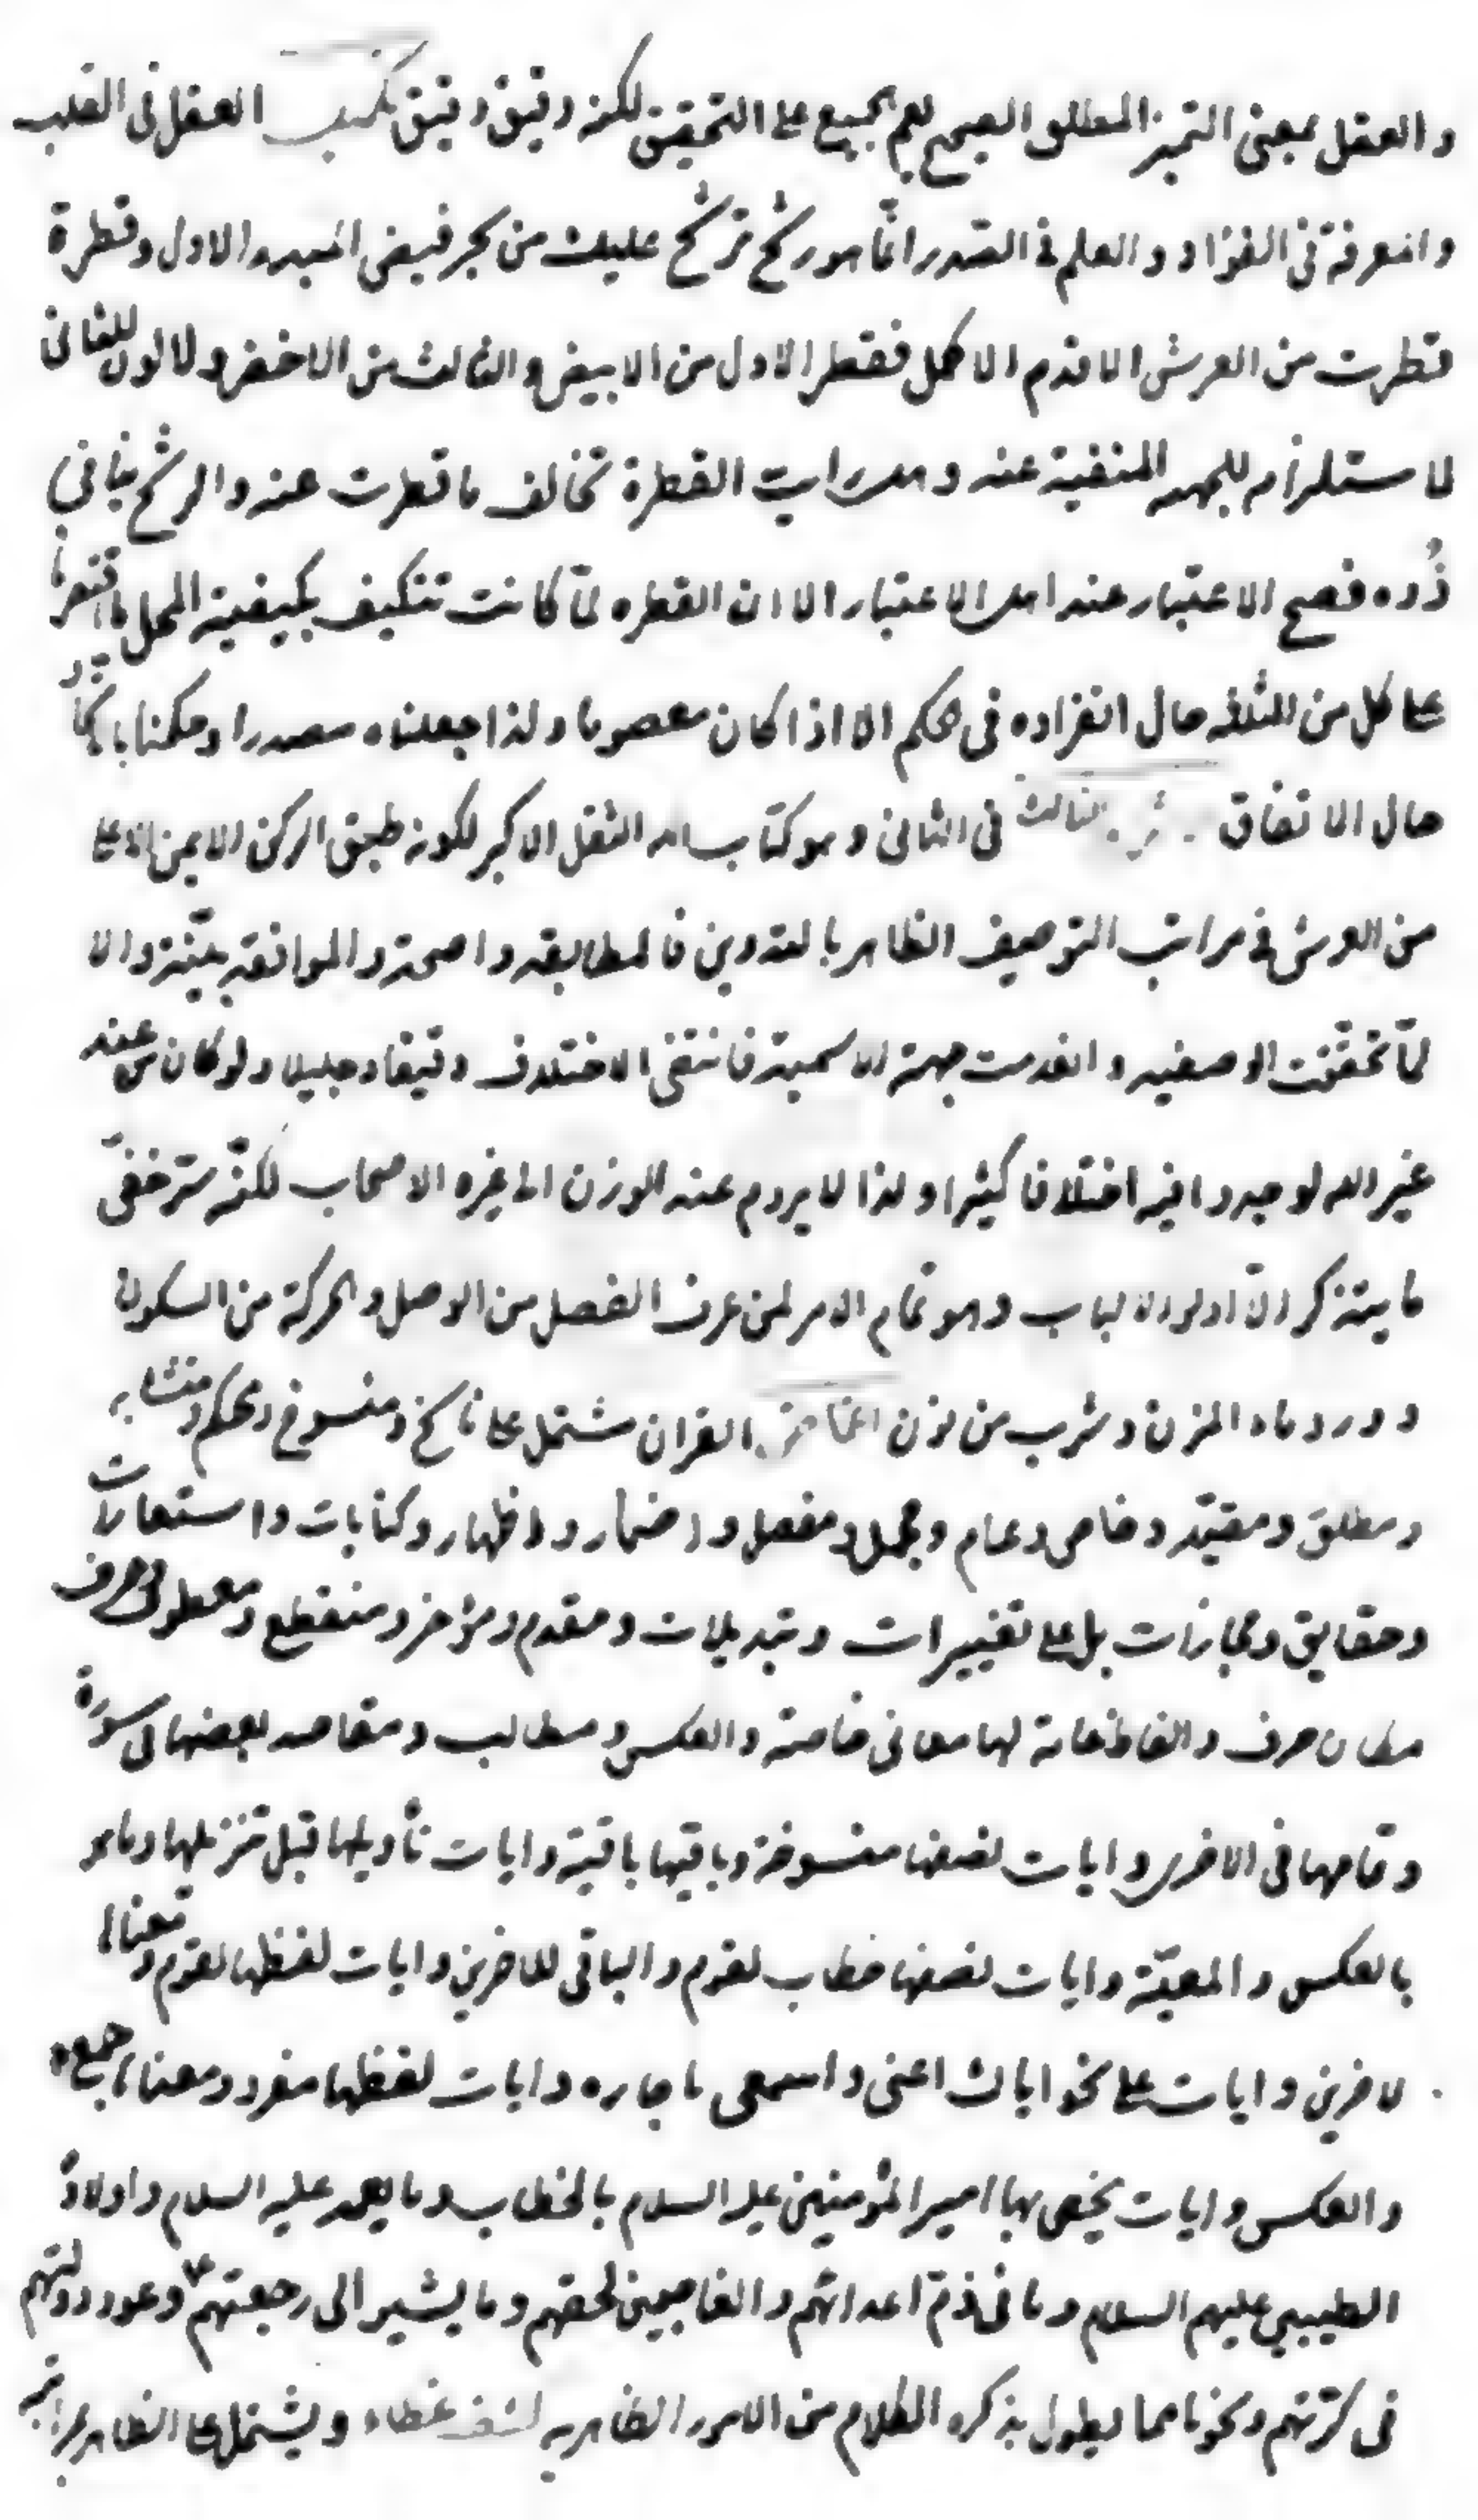 والعقل بمعنى التميز المطلق الصحيح يعم الجميع على التحقيق لكنه دقيق دقيق تنبيب العقل فى القلب
والمعرفة فى الفؤاد والعلم فى الصدر انما هو رشح ترشح عليك من بحر فيض المبدء الاول وقطرة
قطرت من العرش الاقدم الاكمل فقطر الاول من الابيض والثالث من الاخضر ولا لون للثانى
لاستلزامه للجهة المنفية عنه وهل رايت القطرة تخالف ما قطرت عنه والرشح ينافى
فصح الاعتبار عند اهل الاعتبار الا ان القطره لما كانت تتكيف بكيفية المحل
على كل من الثلاثه حال انفراده فى الحكم الا اذا كان معصوما ولذا جعلناه مصدرا وحكمنا
حال الاتفاق الثالث فى الثانى وهو كتاب الله الثقل الاكبر لكونه طبق الركن الايمن الاعلى
من العرش فى مراتب التوصيف الظاهر بالتدوين فالمطابقه واضحة والموافقة بيّنة والا
لما تحققت الوصفيه وانعدمت جهة الاسمية فانتفى الاختلاف دقيقا وجليلا ولو كان من عند
غير الله لوجدوا فيه اختلافا كثيرا ولذا لا يروم عنه الوزن الى غيره الاصحاب لكنه سر خفىّ
ما يتذكر الا اولوا الالباب وهو تمام الامر لمن عرف الفصل من الوصل والحركة من السكون
وورد ماء المزن وشرب من القران مشتمل على ناسخ ومنسوخ ومحكم ومتشابه
ومطلق ومقيّد وخاص وعام ومجمل ومفصل واضمار واظهار وكنايات واستعارات
وحقايق ومجازات بل على تغييرات وتبديلات ومقدم ومؤخر ومنقطع ومعطوف وحرف
مكان حرف والفاظ عامة لها معانى خاصة والعكس ومطالب ومقاصد بعضها فى سورة
وتمامها فى الاخرى وايات نصفها منسوخة وباقيها باقية وايات تأويلها قبل تنزيلها وما هو
بالعكس والمعيّة وايات نصفها خطاب لقوم والباقى للاخرين وايات لفظها لقوم ومعناها
لاخرين وايات على نحو اياك اعنى واسمعى يا جاره وايات لفظها مفرد ومعناها جمع
والعكس وايات يخص بها امير المؤمنين عليه السلام بالخطاب وما يعمه عليه السلام واولاده
الطيبين عليهم السلام وما فى ذم اعدائهم والغاصبين لحقهم وما يشير الى رجعتهم ع وعود دولتهم
فى كرتهم ونحوها مما يطول بذكره الكلام من الامور الظاهريه كشف غطاء ويشتمل على الظاهر